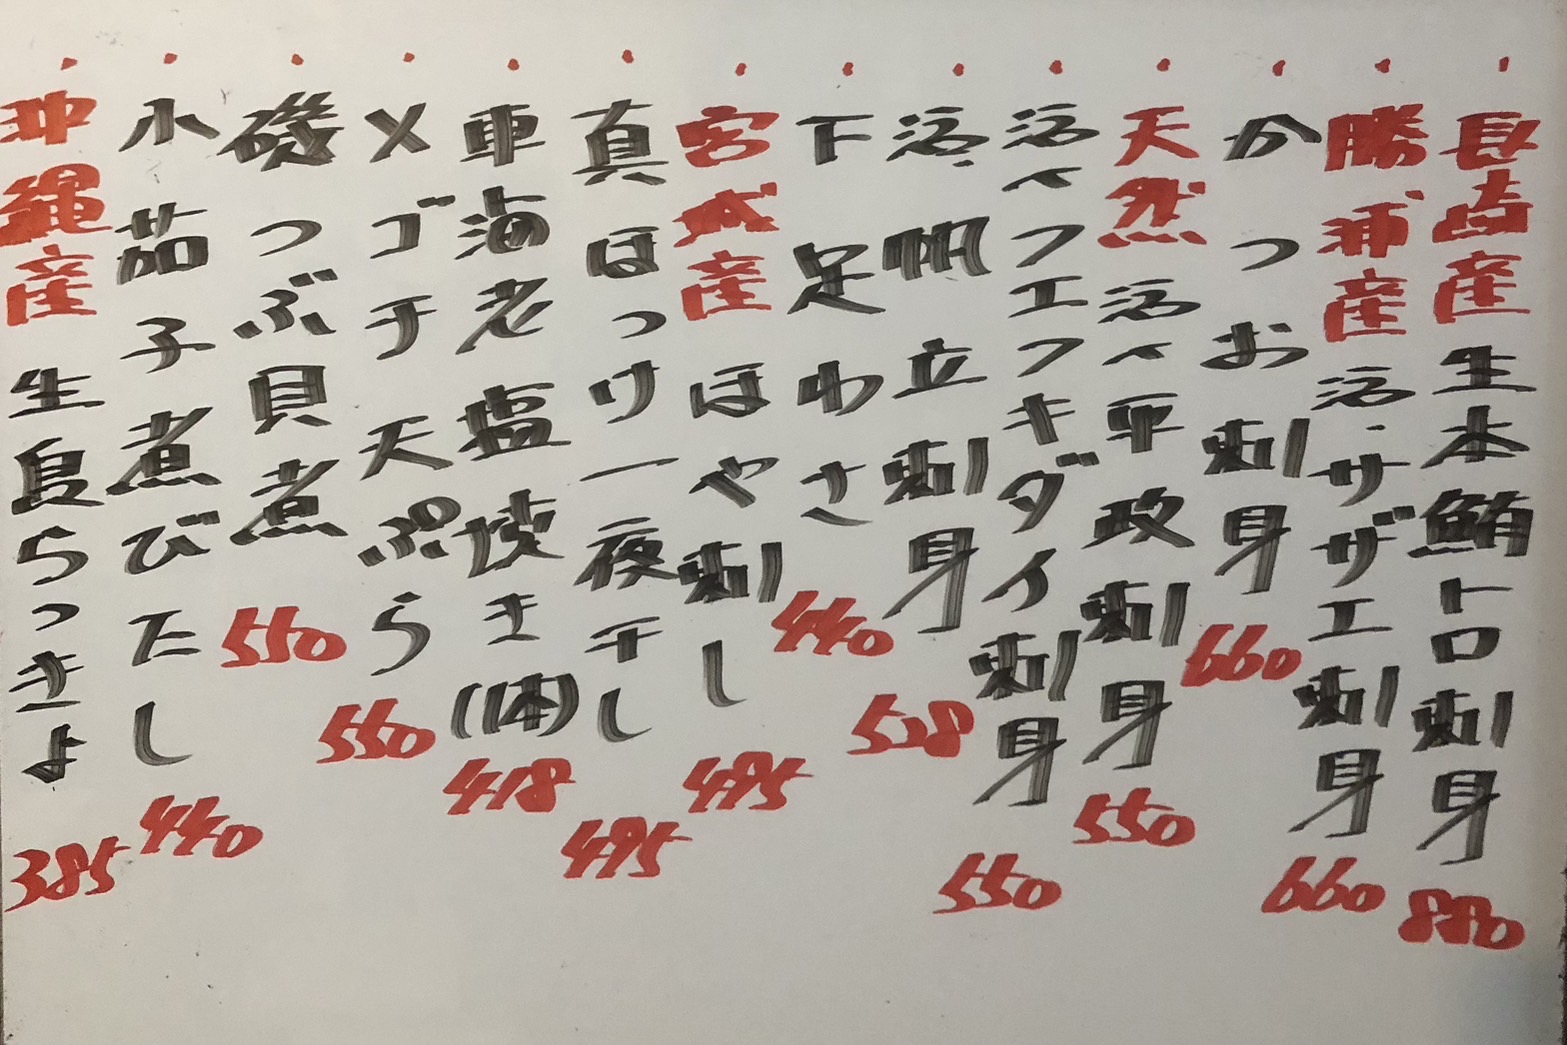 ・長崎産生本鮪トロ刺身 880
・勝浦産活・サザエ刺身 660
・かつお刺身 660
・天然活〆平政刺身 550
・活〆フエフキダイ刺身 550
・活・帆立刺身 528
・下足わさ 440
・宮城産ほや刺し 495
・真ほっけ一夜干し 495
・車海老塩焼き(1本) 418
・メゴチ天ぷら 550
・磯つぶ貝煮 550
・小茄子煮びたし 440
・沖縄産生島らっきょ 385